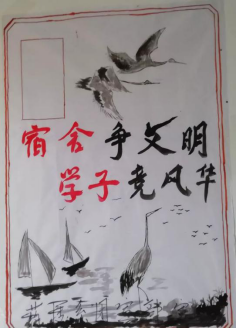 宿舍争文明
学子竞风华